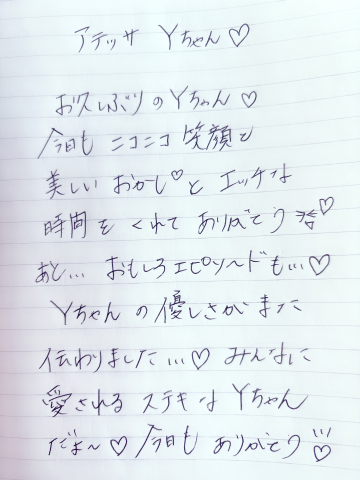 アテッサ Yちゃん♡
お久しぶりのYちゃん♡
今日も ニコニコ 笑顔と
美しい おかし♡と エッチな
時間を くれて ありがとう
あと... おもしろエピソードも...♡
Yちゃん の優しさが また
伝わりました...♡ みんなに
愛される ステキな Yちゃん
だよ〜♡ 今日も ありがとう♡